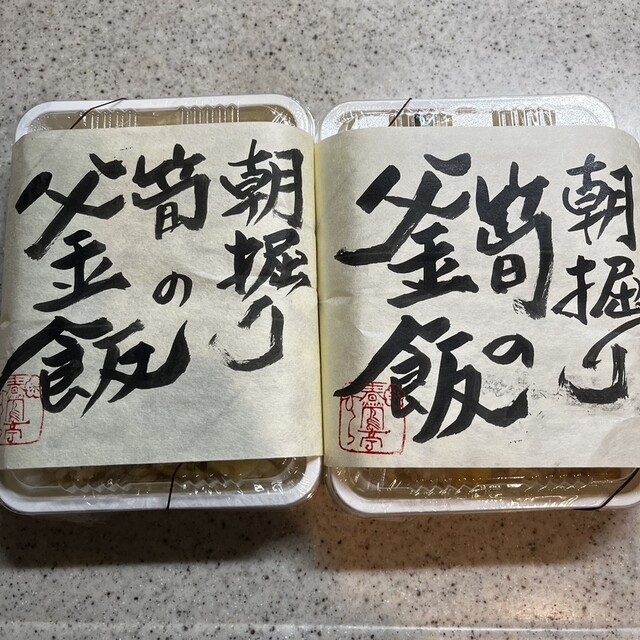 朝掘り
筍の
釜飯
朝掘り
筍の
釜飯